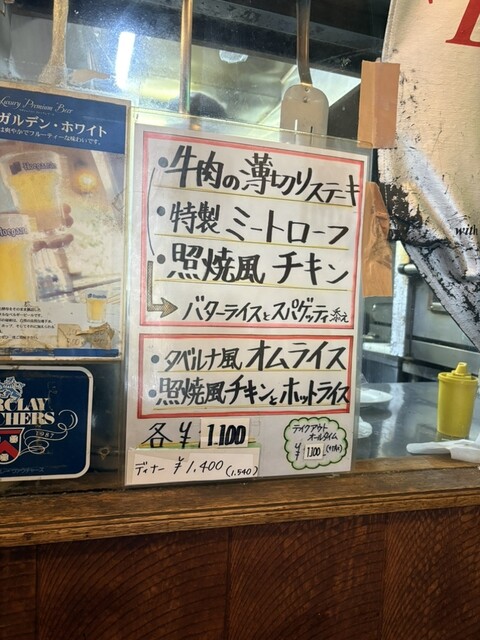 Luxury Premium Beer
ガルデン・ホワイト
は爽やかでフルーティーな味わいです。
Hoegaarden
・牛肉の薄切りステーキ
・特製ミートローフ
・照焼風チキン
→バターライスとスパゲッティ添え
・タベルナ風オムライス
・照焼風チキンとホットライス
各¥1,100
ディナー ¥1,400 (1,540)
テイクアウト
オールタイム
¥1,100
with